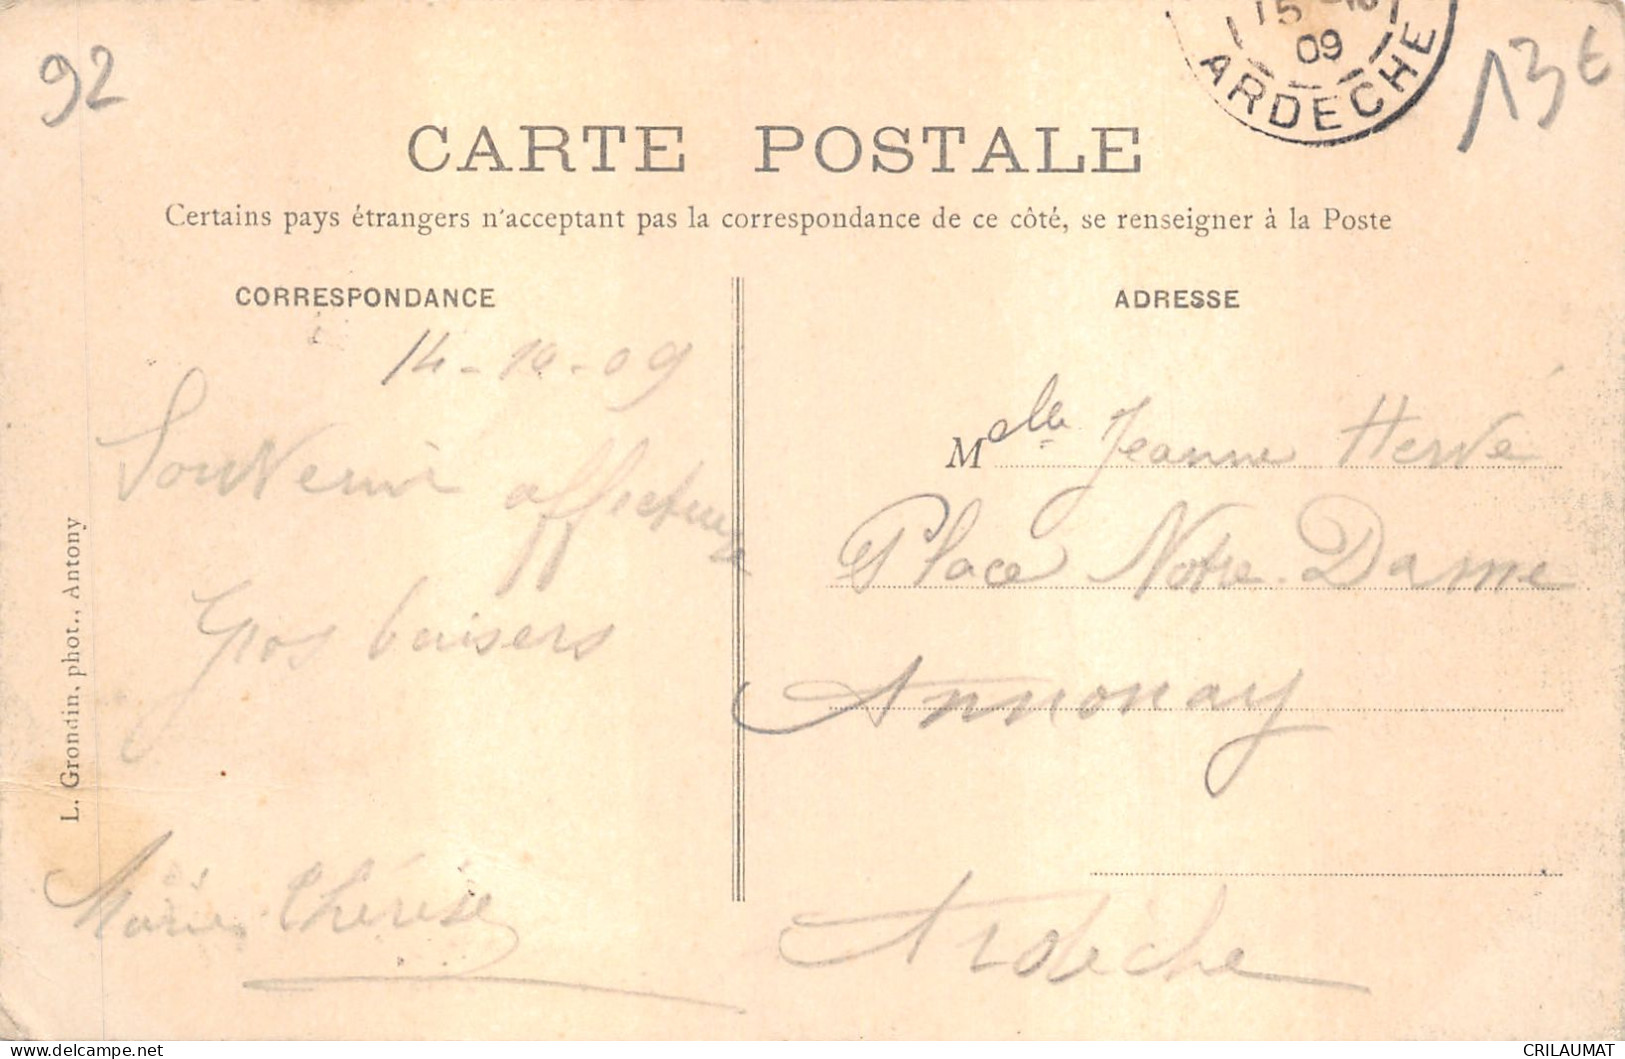 92
15 -10
09
ARDECHE
13€
CARTE POSTALE
Certains pays étrangers n'acceptant pas la correspondance de ce côté, se renseigner à la Poste
CORRESPONDANCE
14-10-09
Souvenir affectueux
Gros baisers
Marie Thérèse
L. Grondin, phot., Antony
ADRESSE
Melle Jeanne Hervé
Place Notre-Dame
Annonay
Ardèche
CRILAUMAT